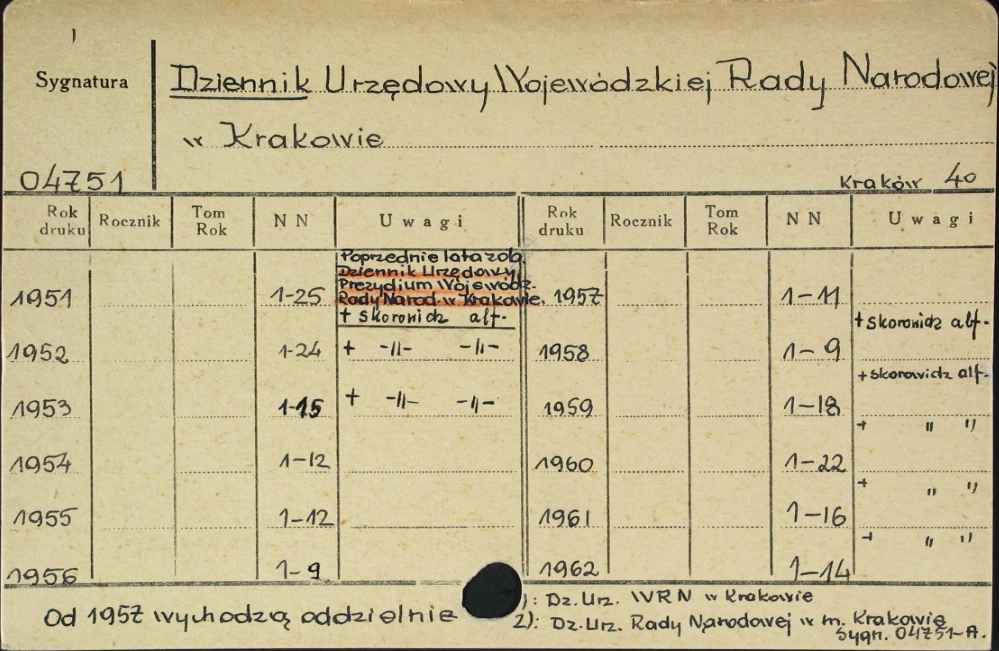 Sygnatura
Dziennik Urzędowy Wojewódzkiej Rady Narodowej
w Krakowie
04751
Kraków 40
Rok druku Rocznik Tom Rok NN Uwagi Rok druku Rocznik Tom Rok NN Uwagi
Poprzednie lata zob.
Dziennik Urzędowy
Prezydium Wojewódz.
Rady Narod. w Krakowie.
1951 1-25 + skorowidz alf. 1957 1-11
+ skorowidz alf.
1952 1-24 + -||- -||- 1958 1-9
+ skorowidz alf.
1953 1-15 + -||- -||- 1959 1-18
+ " "
1954 1-12 1960 1-22
+ " "
1955 1-12 1961 1-16
+ " "
1956 1-9 1962 1-14
Od 1957 wychodzą oddzielnie
): Dz. Urz. WRN w Krakowie
2): Dz. Urz. Rady Narodowej w m. Krakowie
Sygn. 04751-A.